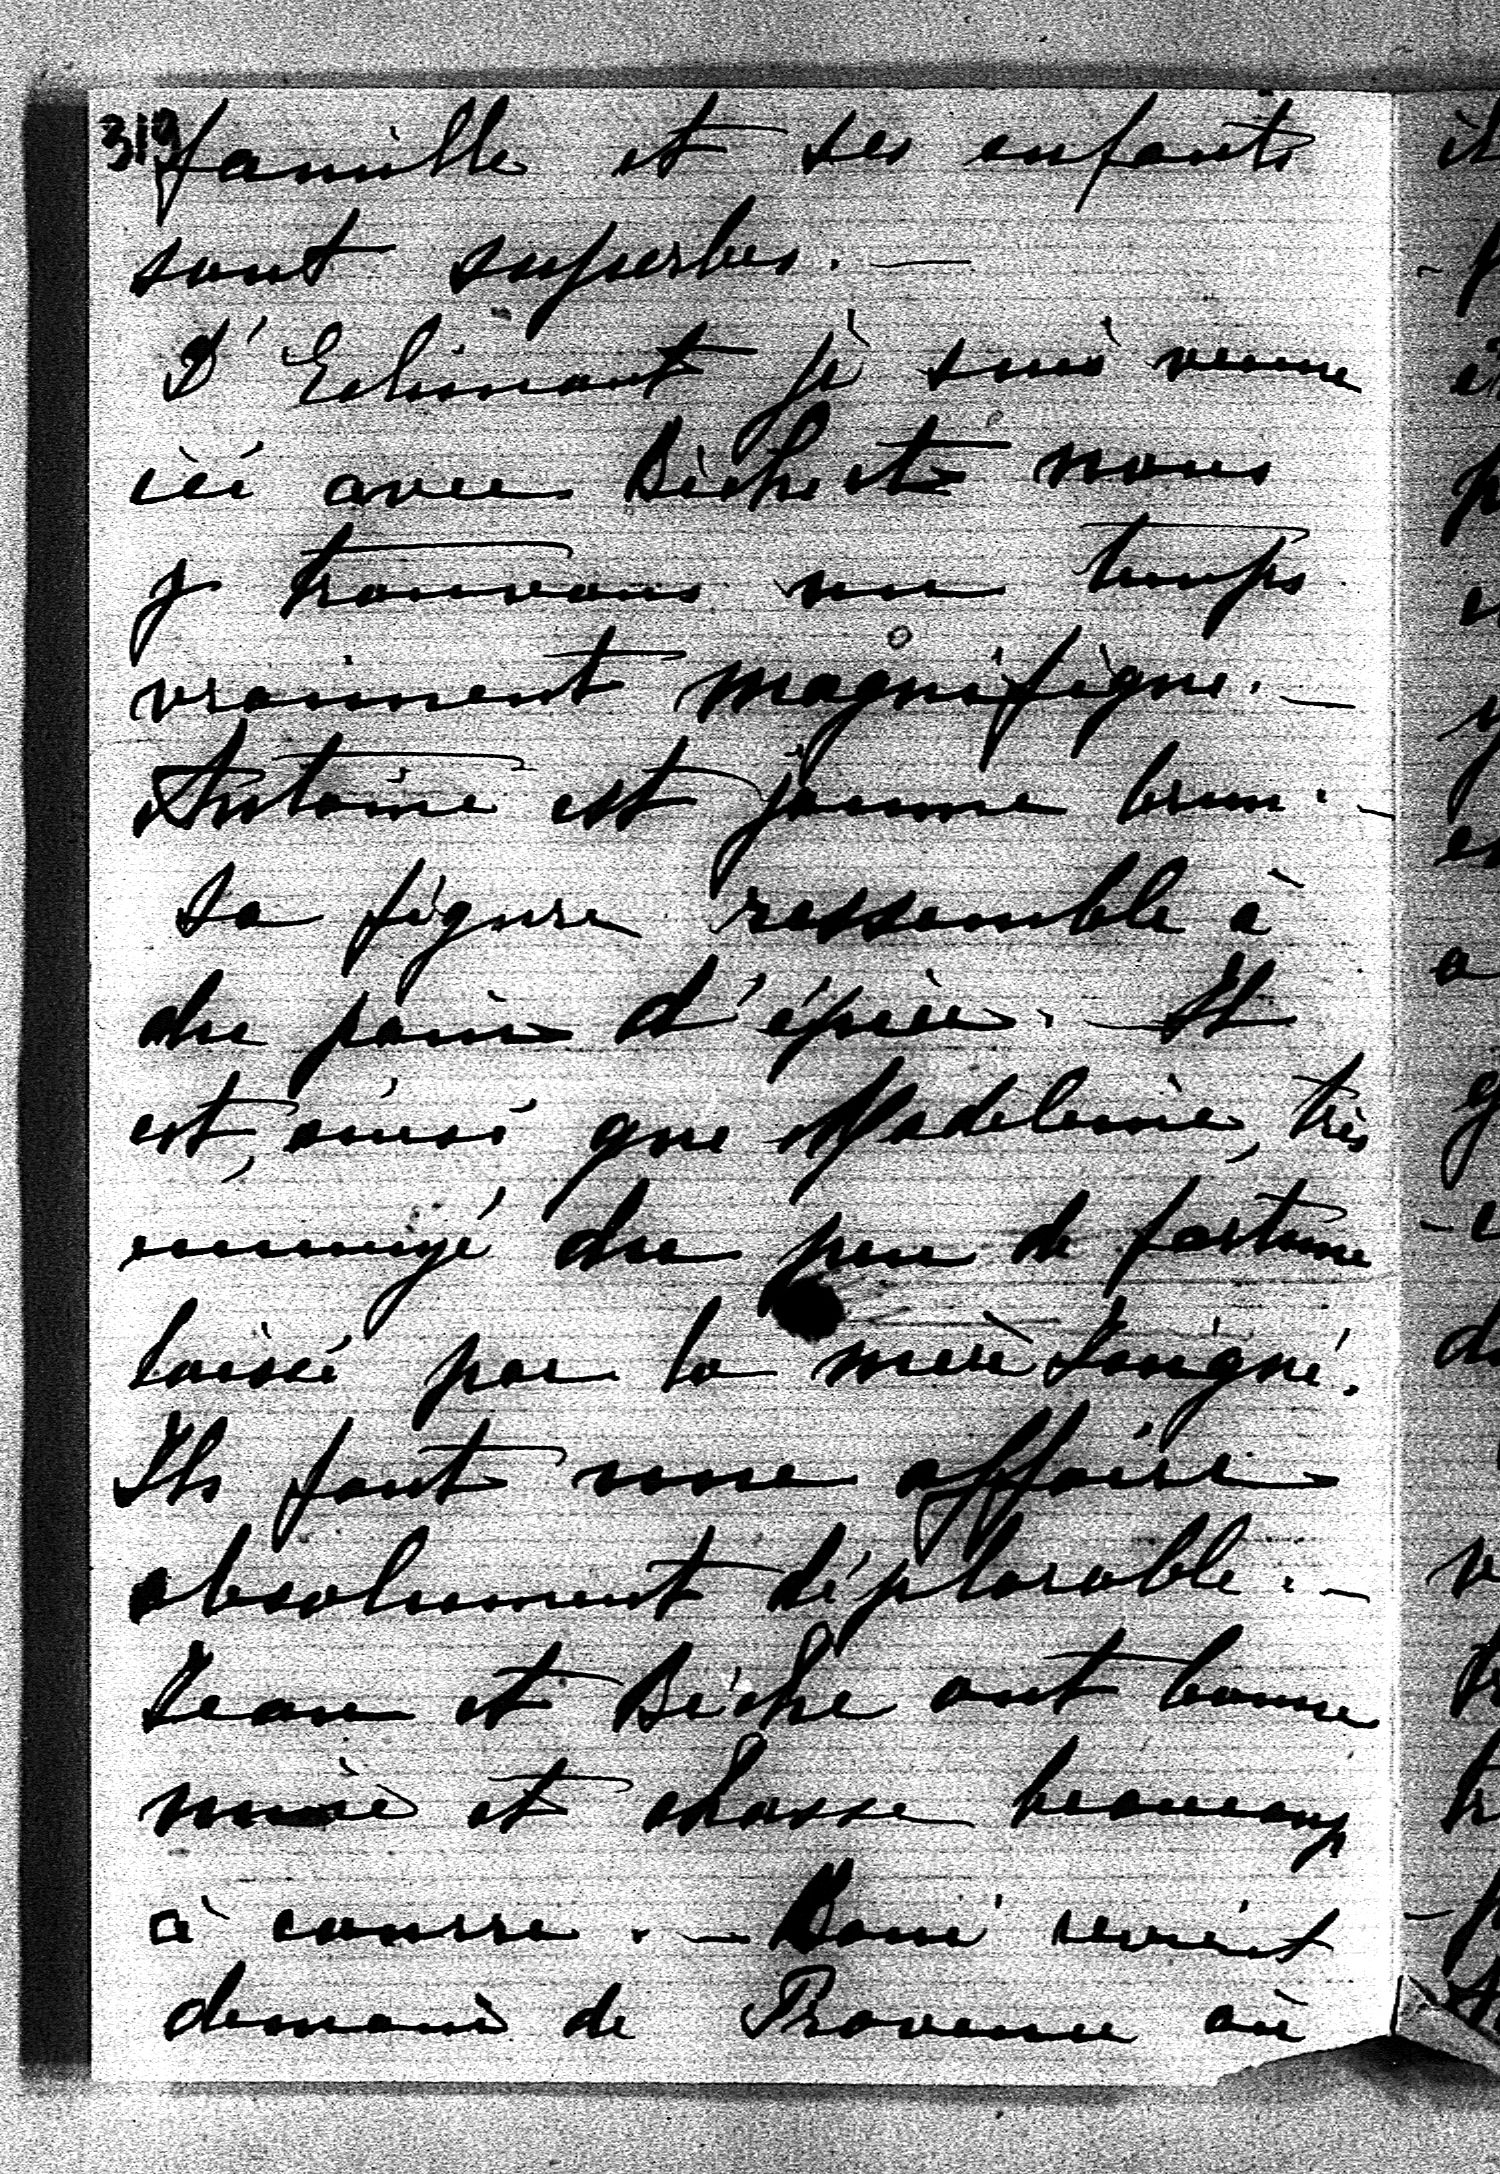 319
famille et ses enfants
sont superbes. —
D'Eclimont je suis venue
ici avec Biche et nous
y trouvons un temps
vraiment magnifique. —
Antoine est jaune brun. —
Sa figure ressemble à
du pain d'épice. — Il
est, ainsi que Madeleine, très
ennuyé du peu de fortune
laissé par la mère
Ils font une affaire
absolument déplorable. —
Jean et Biche ont bonne
mine et chasse beaucoup
à courre. — revient
demain de Provence où